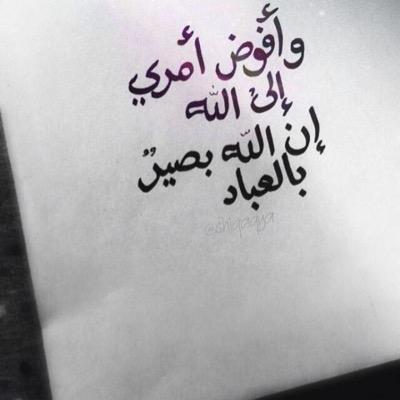 وأفوض أمري
إلىٰ الله
إن الله بصيرٌ
بالعباد
@shiqaqya